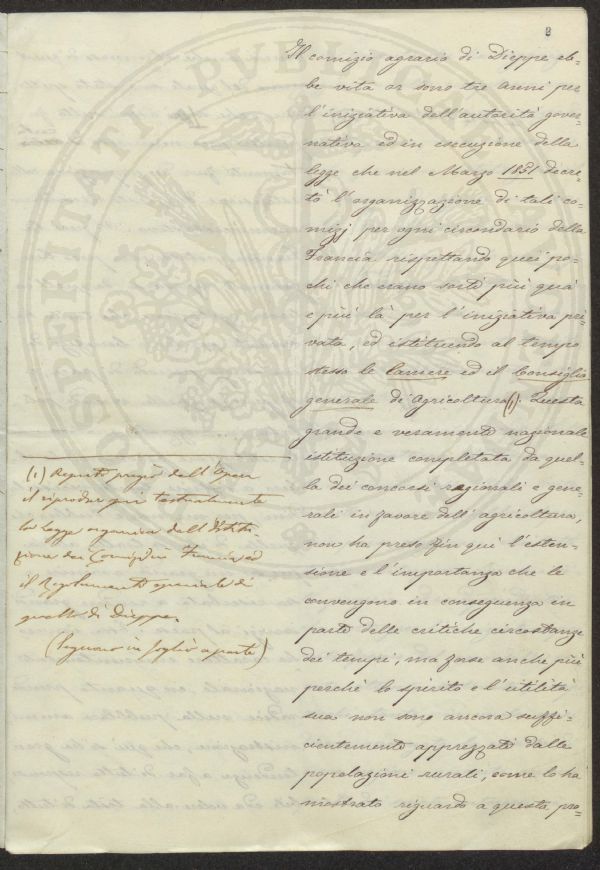 2
Il comizio agrario di Dieppe eb-
be vita or sono tre anni per
l'iniziativa dell'autorità gover-
nativa ed in esecuzione della
legge che nel Marzo 1851 decre-
tò l'organizzazione di tali co-
mizj per ogni circondario della
Francia rispettando quei po-
chi che erano sorti più quà
e più là per l'iniziativa pri-
vata, ed istituendo al tempo
stesso le Camere ed il Consiglio
generale di Agricoltura (1). Questa
grande e veramente nazionale
istituzione completata da quel-
la dei concorsi regionali e gene-
rali in favore dell'agricoltura,
non ha preso fin quì l'esten-
sione e l'importanza che le
convengono in conseguenza in
parte delle critiche circostanze
dei tempi, ma forse anche più
perchè lo spirito e l'utilità
sua non sono ancora suffi-
cientemente apprezzati dalle
popolazioni rurali, come lo ha
mostrato riguardo a questa pro-
(1) Reputo pregio dell'Opera
il riprodur quì testualmente
la legge organica dell'Istitu-
zione dei Comizj in Francia ed
il Regolamento speciale di
quello di Dieppe.
(Seguono in foglio a parte)
PROSPERITATI PVBLICAE